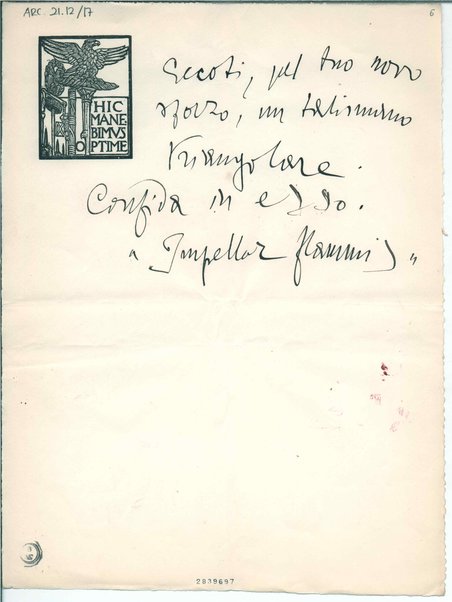 ARC. 21.12/17
6
HIC
MANE
BIMVS
OPTIME
Eccoti, pel tuo novo
sforzo, un talismano
triangolare.
Confida in esso.
"Impellor flammis"
2839697